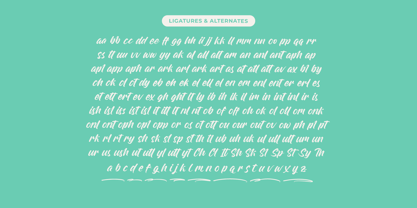 LIGATURES & ALTERNATES
aa bb cc dd ee ff gg hh ii jj kk ll mm nn oo pp qq rr
ss tt uu vv ww yy ak al all alt am an anl ant aph ap
apl app aph ar ark arl ark art as at att att av ax bl by
ch ck cl ct dy eb eh ek el ell el en em enl ent er erl es
et ett ert ev ex gh ght tt ly ib ih ik il im in int inl ir is
ish ist iss ist isl it itt tt nl nt ob of off oh ck ol oll om onk
onl ont oph opl opp or os ot ott ou our out ov ow ph pl pt
rk rl rt ry sh sk sl sp st th tl ub uh uk ul ull ult um un
ur us ush ut utt yl utt yt Ch Cl It Sh Sk Sl Sp St Sy Th
a b c d e f g h i j k l m n o p q r s t u v w x y z